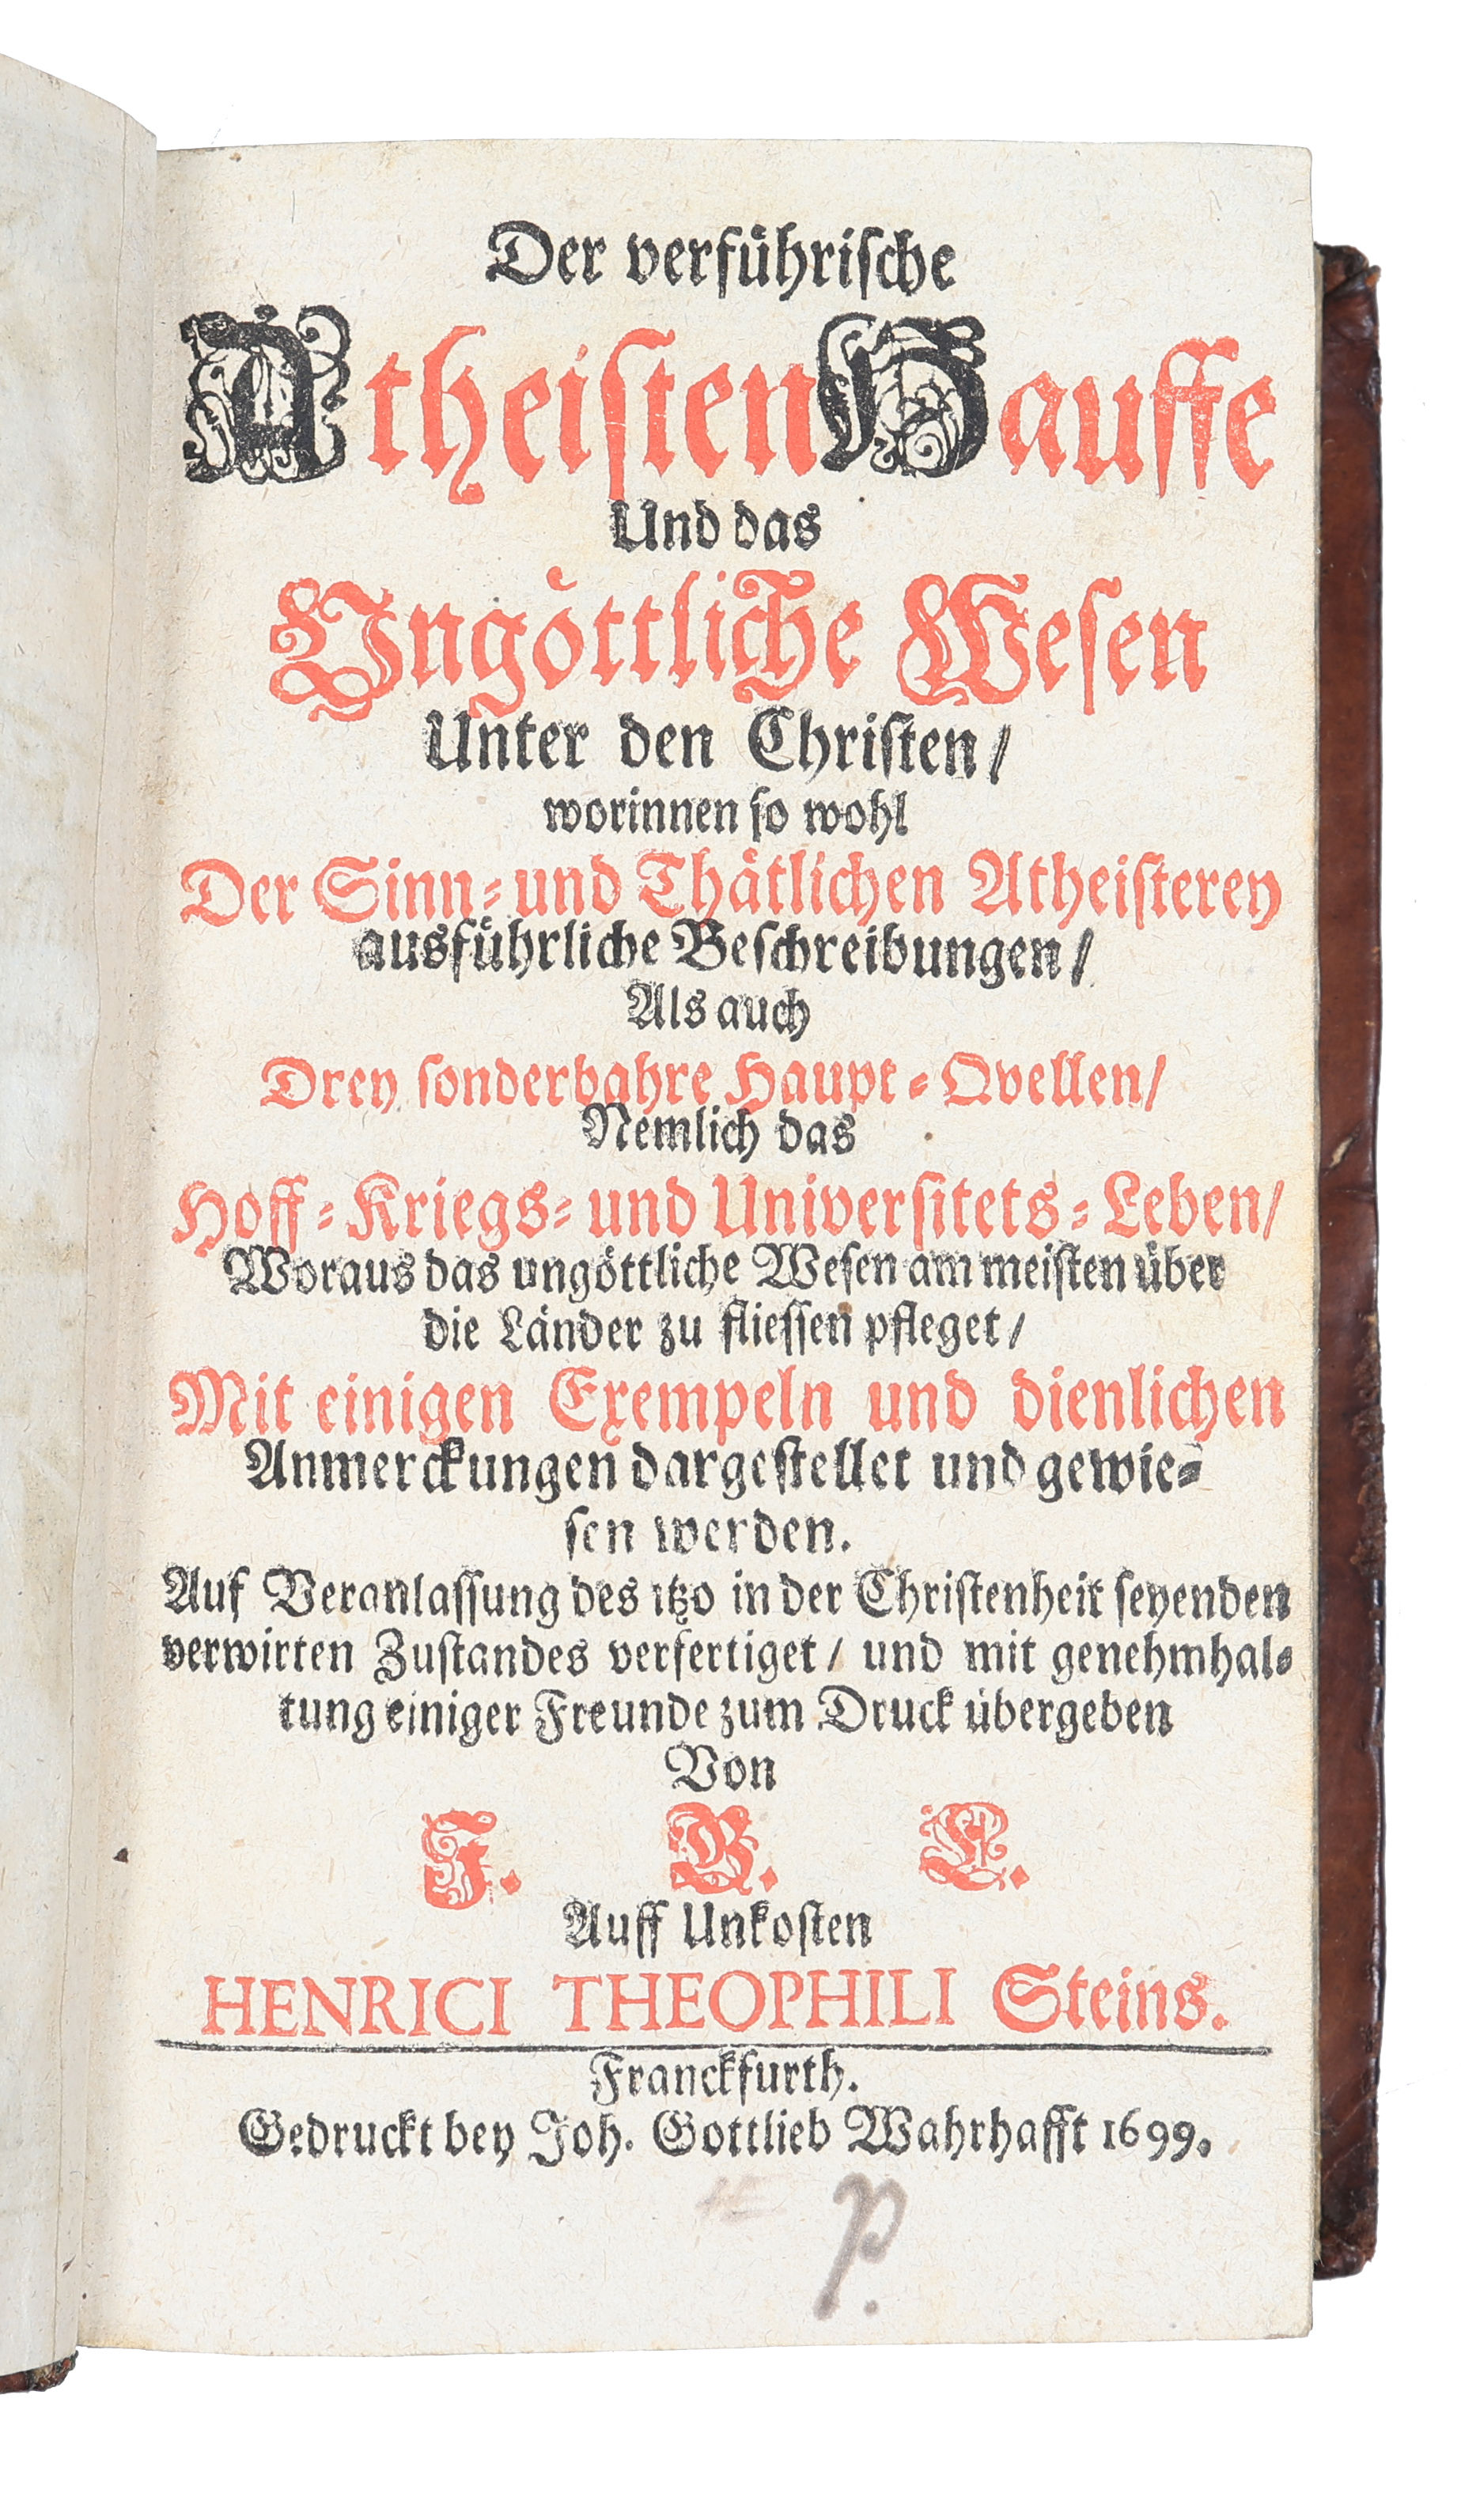 Der verführische
Atheisten Hauffe
Und das
Ungöttliche Wesen
Unter den Christen/
worinnen so wohl
Der Sinn-und Thätlichen Atheisterey
ausführliche Beschreibungen/
Als auch
Drey sonderbahre Haupt-Qvellen/
Nemlich das
Hoff-Kriegs-und Universitets-Leben/
Woraus das ungöttliche Wesen am meisten über
die Länder zu fliessen pfleget/
Mit einigen Exempeln und dienlichen
Anmerckungen dargestellet und gewie-
sen werden.
Auf Veranlassung des itzo in der Christenheit seyenden
verwirten Zustandes verfertiget/ und mit genehmhal-
tung einiger Freunde zum Druck übergeben
Von
J. B. L.
Auff Unkosten
HENRICI THEOPHILI Steins.
Franckfurth.
Gedruckt bey Joh. Gottlieb Wahrhafft 1699.
P.